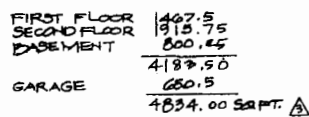 FIRST FLOOR 1467.5
SECOND FLOOR 1915.75
BASEMENT 800.25
4183.50
GARAGE 650.5
4834.00 SQ.FT. 3